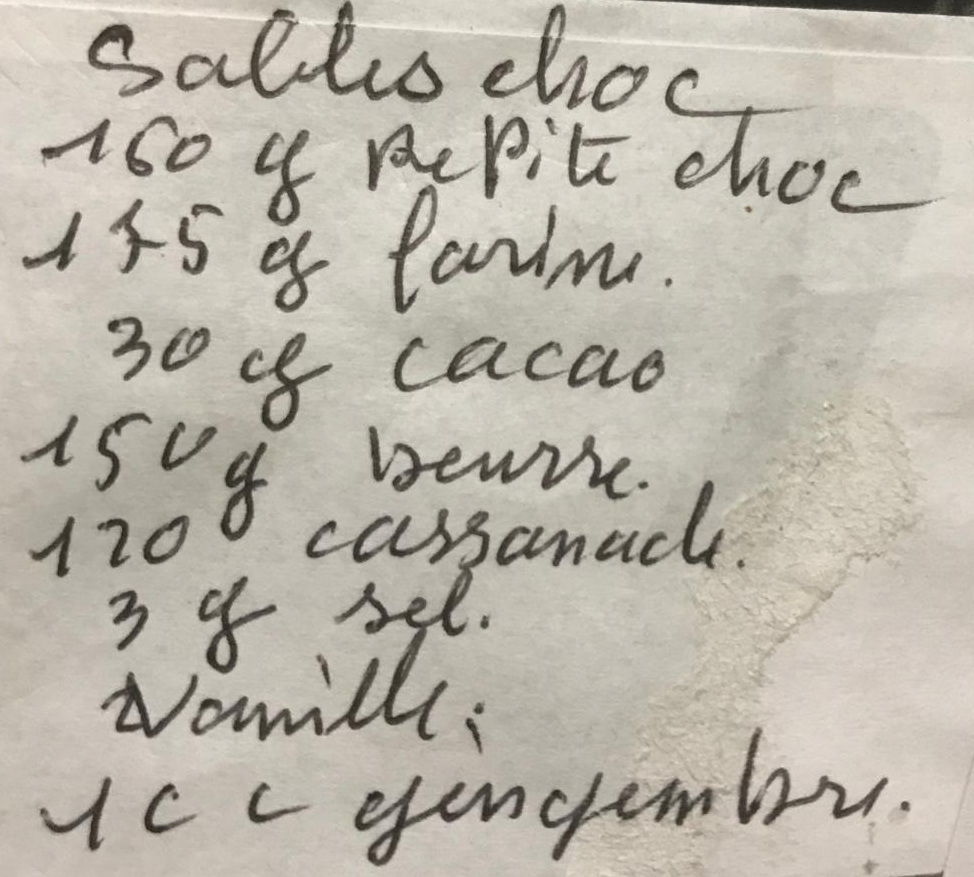 Sablés choc
160 g pepite choc
175 g farine.
30 g cacao
150 g beurre.
120 cassanade.
3 g sel.
Vanille.
1 c c gengembre.